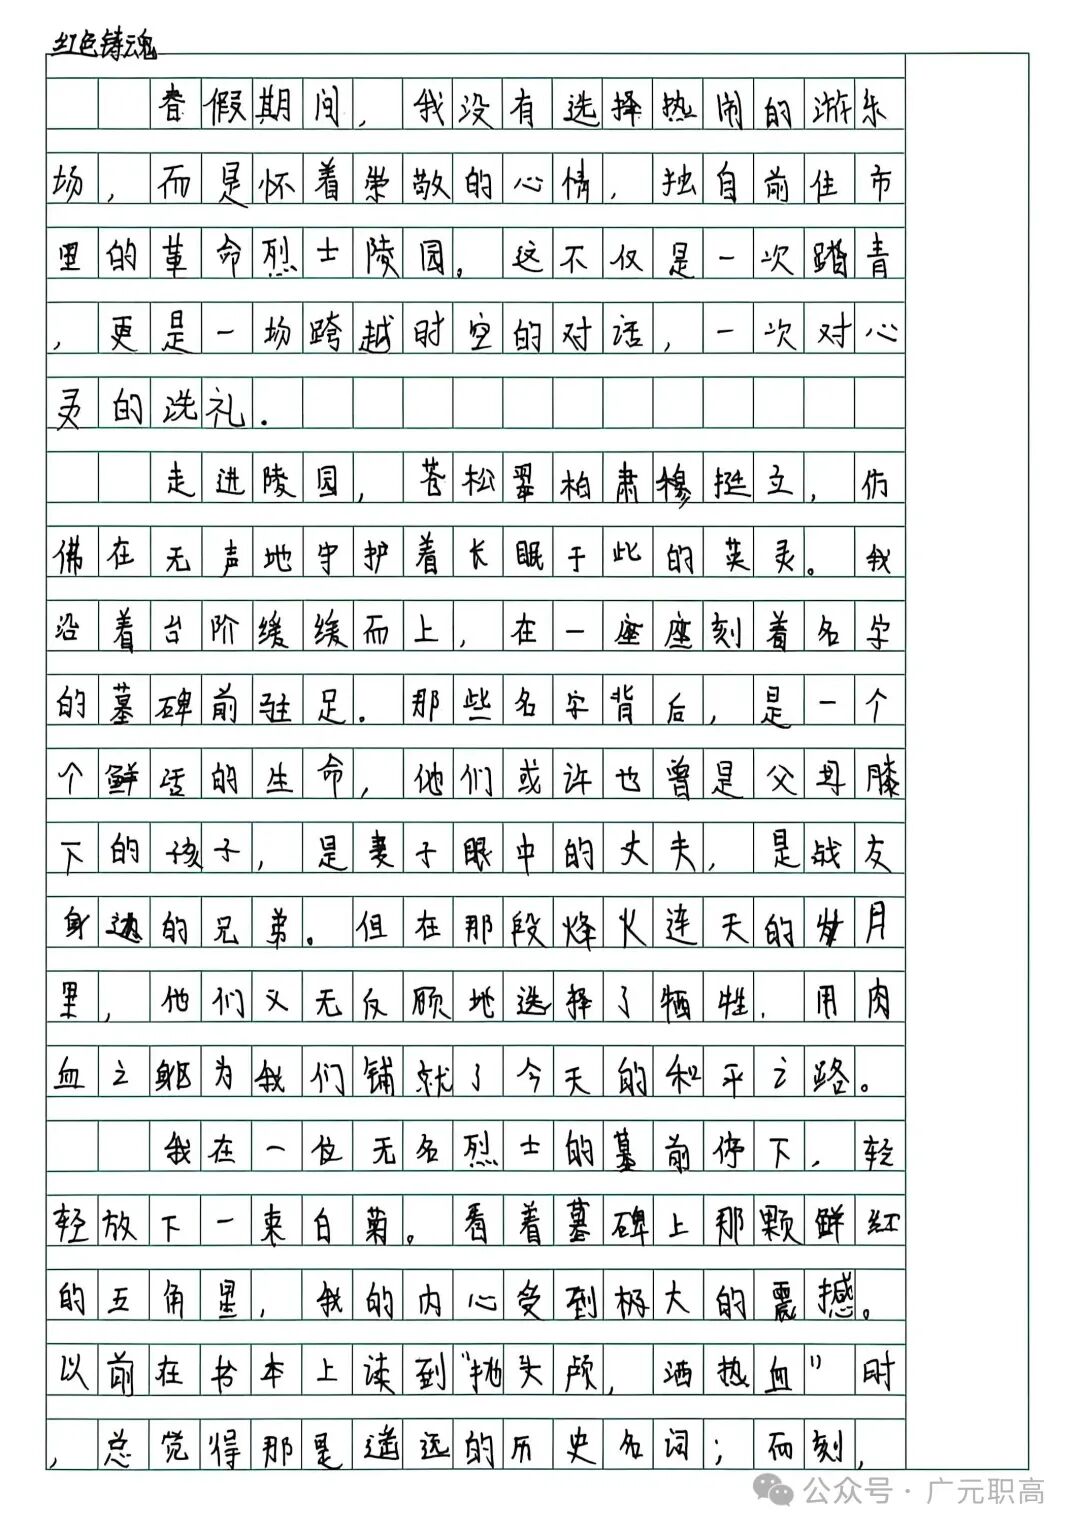 红色铸魂
春假期间，我没有选择热闹的游乐
场，而是怀着崇敬的心情，独自前往市
里的革命烈士陵园。这不仅是一次踏青
，更是一场跨越时空的对话，一次对心
灵的洗礼.
走进陵园，苍松翠柏肃穆挺立，仿
佛在无声地守护着长眠于此的英灵。我
沿着台阶缓缓而上，在一座座刻着名字
的墓碑前驻足.那些名字背后，是一个
个鲜活的生命，他们或许也曾是父母膝
下的孩子，是妻子眼中的丈夫，是战友
身边的兄弟。但在那段烽火连天的岁月
里，他们义无反顾地选择了牺牲.用肉
血之躯为我们铺就了今天的和平之路。
我在一位无名烈士的墓前停下，轻
轻放下一束白菊。看着墓碑上那颗鲜红
的五角星，我的内心受到极大的震撼。
以前在书本上读到"抛头颅，洒热血"时
，总觉得那是遥远的历史名词；而刻，
公众号·广元职高